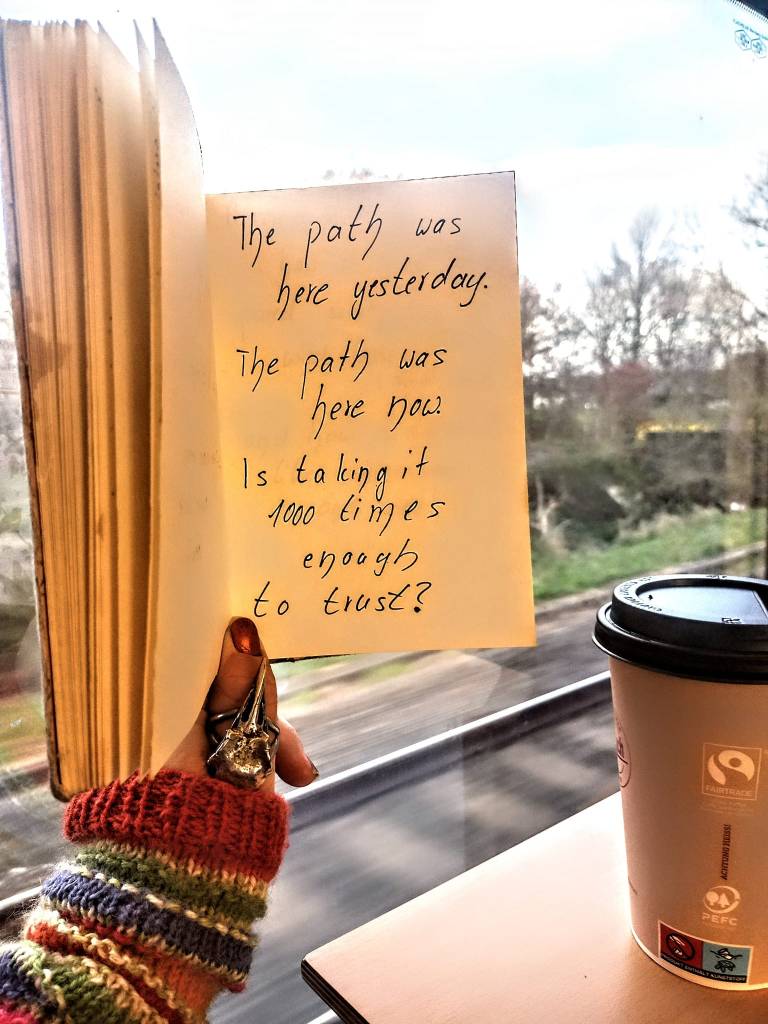 The path was
here yesterday.
The path was
here now.
Is taking it
1000 times
enough
to trust?
FAIRTRADE
ACHTUNG HEISS!
PEFC
PRODUKT ENTHÄLT KUNSTSTOFF